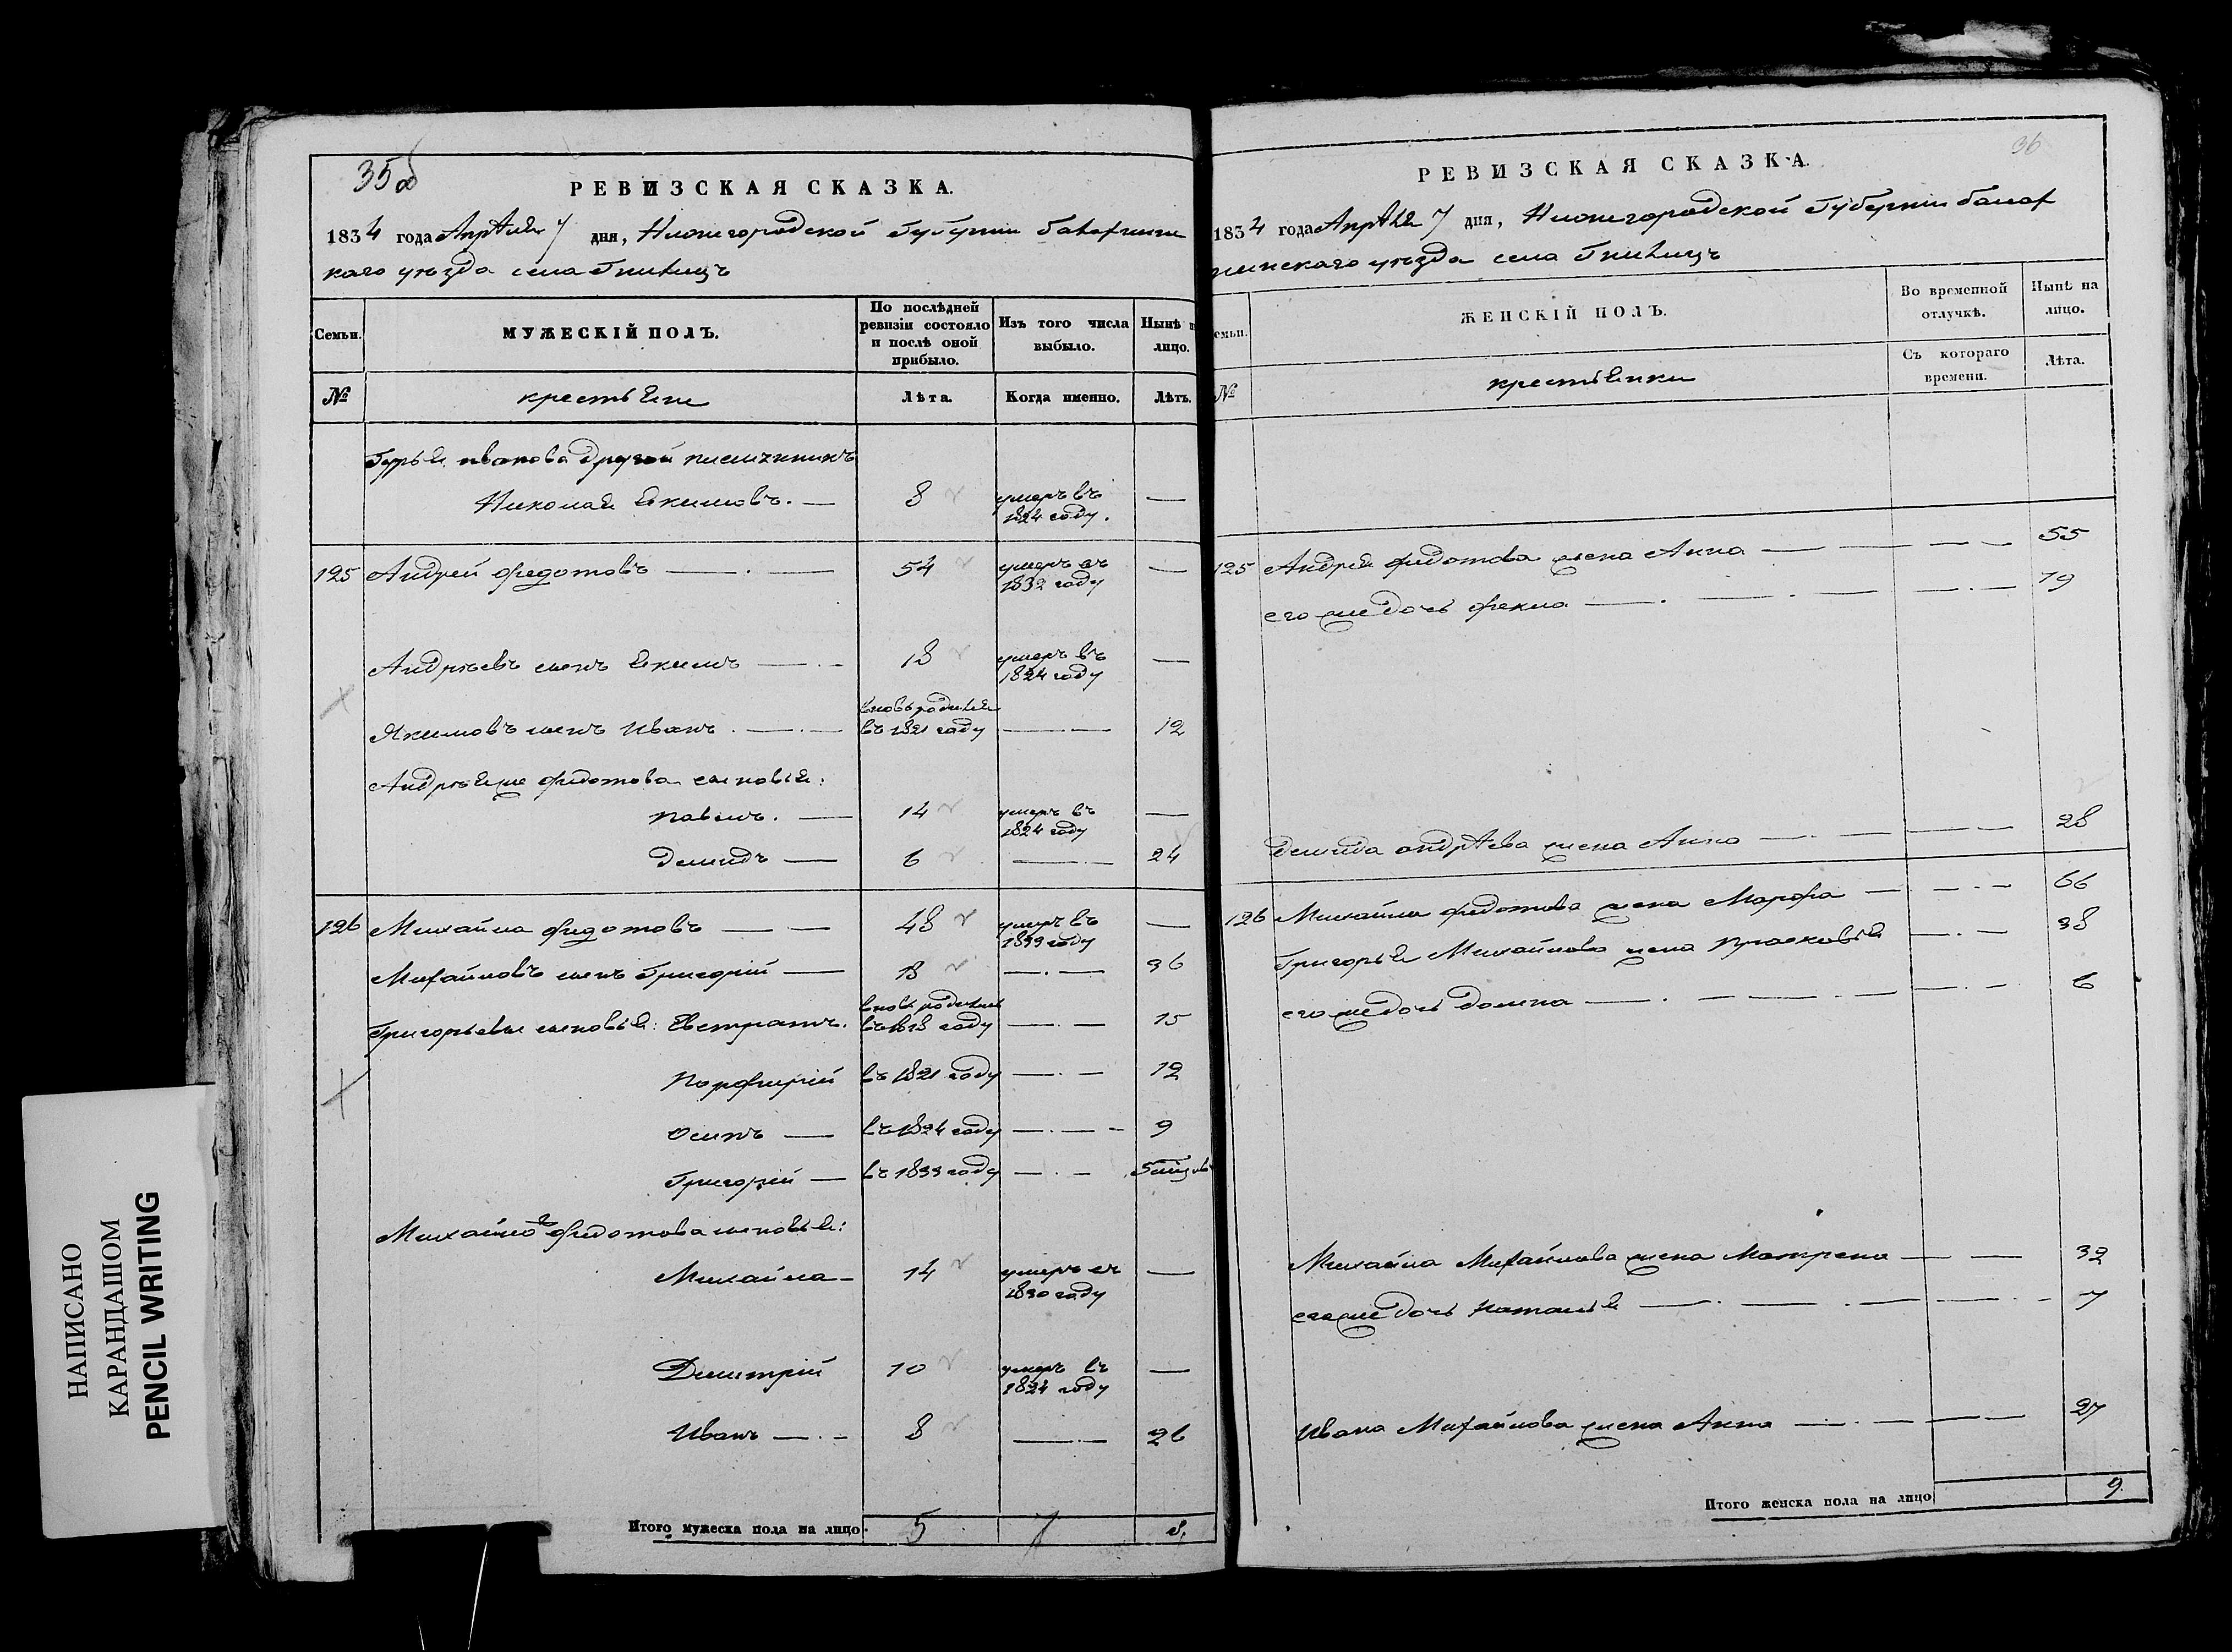 35 об
РЕВИЗСКАЯ СКАЗКА.
1834 года Апреля 7 дня, Нижегородской Губернии
каго уезда села Гнилиц
Семьи.
МУЖЕСКІЙ ПОЛЪ.
По послѣдней
ревизіи состояло
и послѣ оной
прибыло.
Изъ того числа
выбыло.
Нынѣ н
лицо.
№
крестьяне
Лѣта.
Когда именно.
Лѣтъ.
Гурья иванова другой племянникъ
Николай Екимовъ. — 8 умеръ въ —
1824 году.
125 Андрей федотовъ — 54 умеръ въ —
1832 году
Андреевъ сынъ Екимъ — 18 умеръ въ —
1824 году
вновь родился
Якимовъ сынъ иванъ. — въ 1821 году — 12
Андрея же федотова сыновья:
павелъ. — 14 умеръ въ —
1824 году
демидъ — 6 — 24
126 Михайла федотовъ — 48 умеръ въ —
1833 году
Михайловъ сынъ Григорій — 18 — 36
вновь родились
Григорьевы сыновья: Евстратъ. въ 1818 году — 15
порфирій въ 1821 году — 12
осипъ — въ 1824 году — 9
Григорій — въ 1833 году — 5
Михайло федотова сыновья:
Михайла — 14 умеръ въ —
1830 году
Дмитрій 10 умеръ въ —
1824 году
Иванъ — 8 — 26
Итого мужеска пола на лицо. 5 7 8
36
РЕВИЗСКАЯ СКАЗКА.
1834 года Апреля 7 дня, Нижегородской Губернии
нинскаго уезда села Гнилицъ
емьи.
ЖЕНСКІЙ ПОЛЪ.
Во временной
отлучкѣ.
Нынѣ на
лицо.
№
крестьянки
Съ котораго
времени.
Лѣта.
125 Андрея федотова жена Анна — 55
его же дочь фекла — 19
демида андреева жена Анна — 28
126 Михайла федотова жена Марфа — 66
Григорья Михайлова жена прасковья — 38
его же дочь домна — 6
Михайла Михайлова жена Матрена — 32
его же дочь наталья — 7
Ивана Михайлова жена Анна — 27
Итого женска пола на лицо 9
НАПИСАНО
КАРАНДАШОМ
PENCIL WRITING